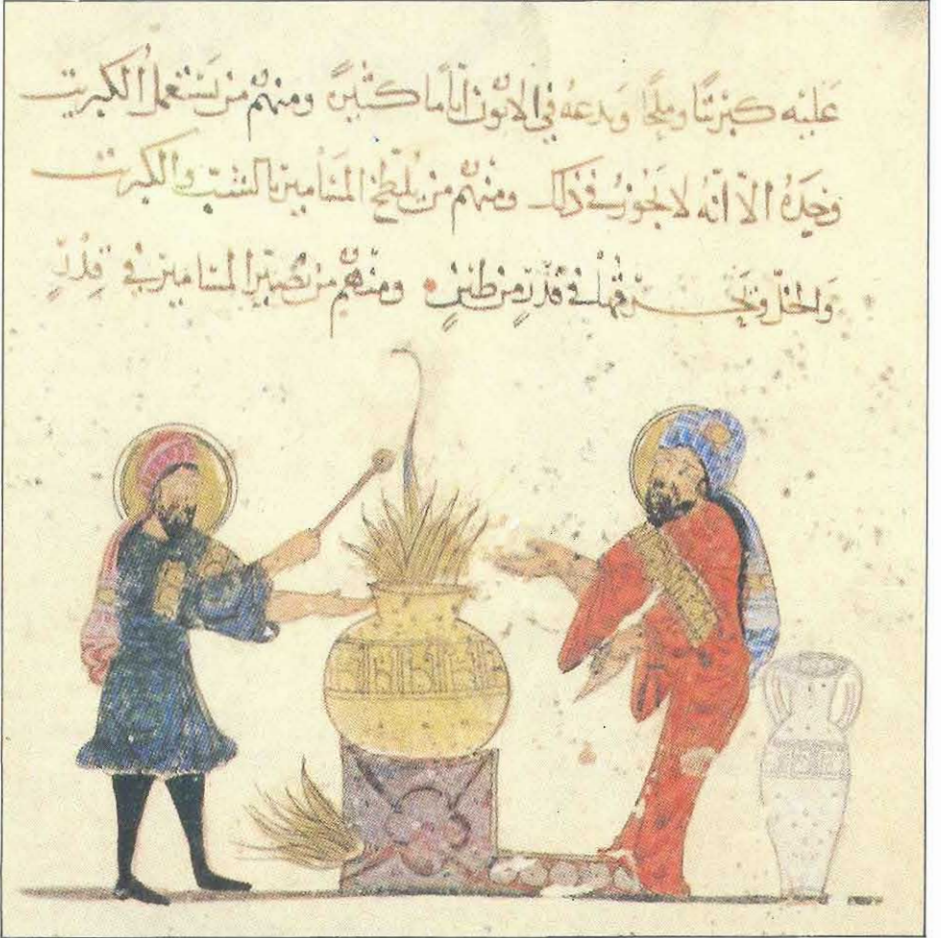 عليه كبريتا وملحا ويدعه في الاتون اياما كثيرة ومنهم من يستعمل الكبريت
وحده الا انه لا يجوز في ذلك ومنهم من يلطخ المسامير بالشب والكبريت
والخل و في قدر من طين ومنهم من يصير المسامير في قدر